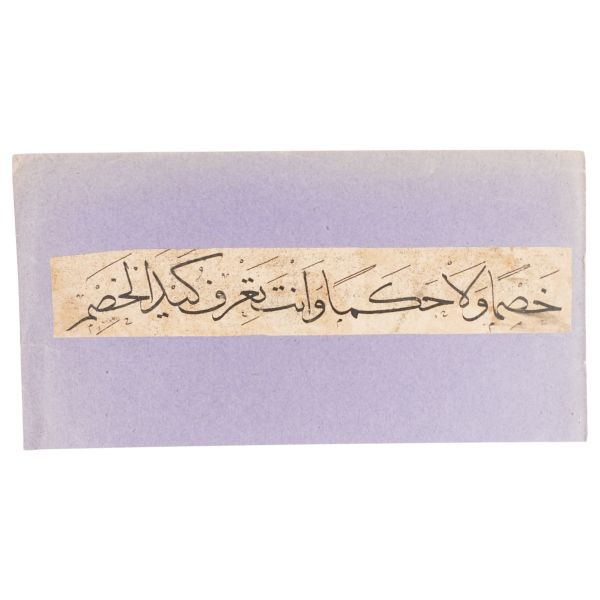 خَصْمًا وَلَا حَكَمًا وَاَنْتَ تَعْرِفُ كَيْدَ الْخَصْمِ